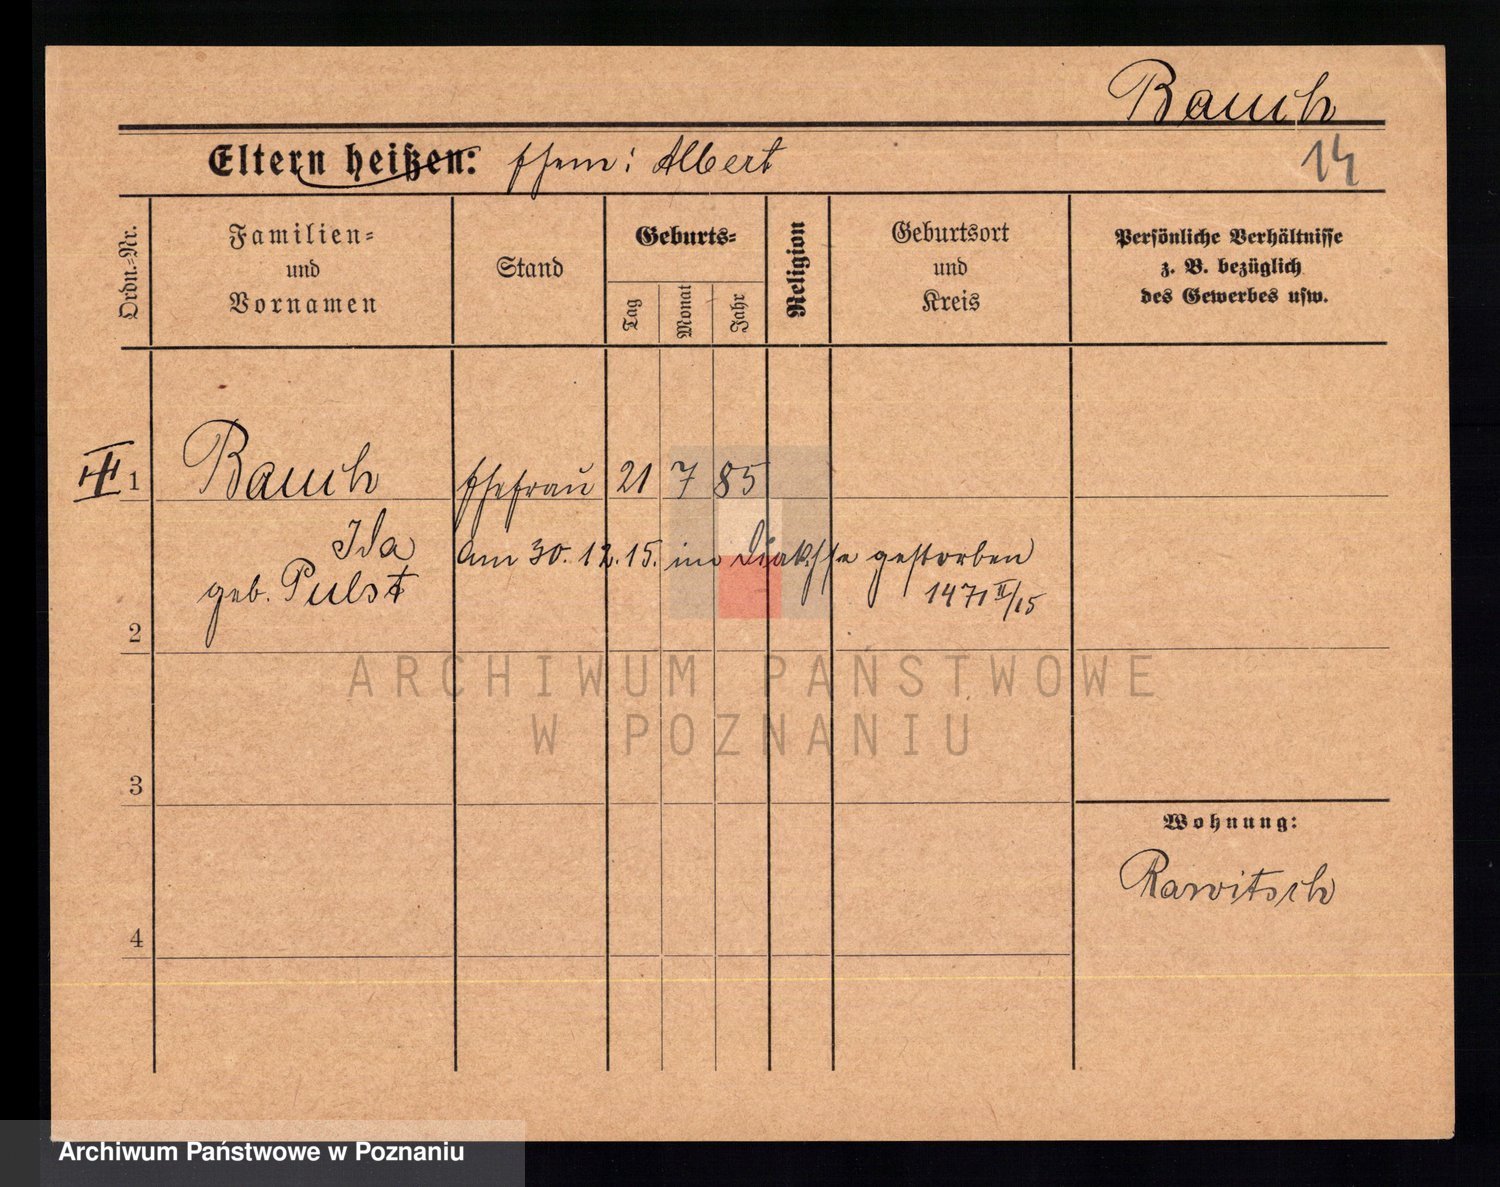 Bauch
Eltern heißen: Ehem: Albert
14
Ordn.-Nr.
Familien-
und
Vornamen
Stand
Geburts-
Tag
Monat
Jahr
Religion
Geburtsort
und
Kreis
Persönliche Verhältnisse
z. B. bezüglich
des Gewerbes usw.
1 Bauch Ehefrau 21 7 85
Ida
am 30. 12. 15. im gestorben
geb. Pulst
1471 II/15
2
ARCHIWUM PAŃSTWOWE
W POZNANIU
3
Wohnung:
Rawitsch
4
Archiwum Państwowe w Poznaniu